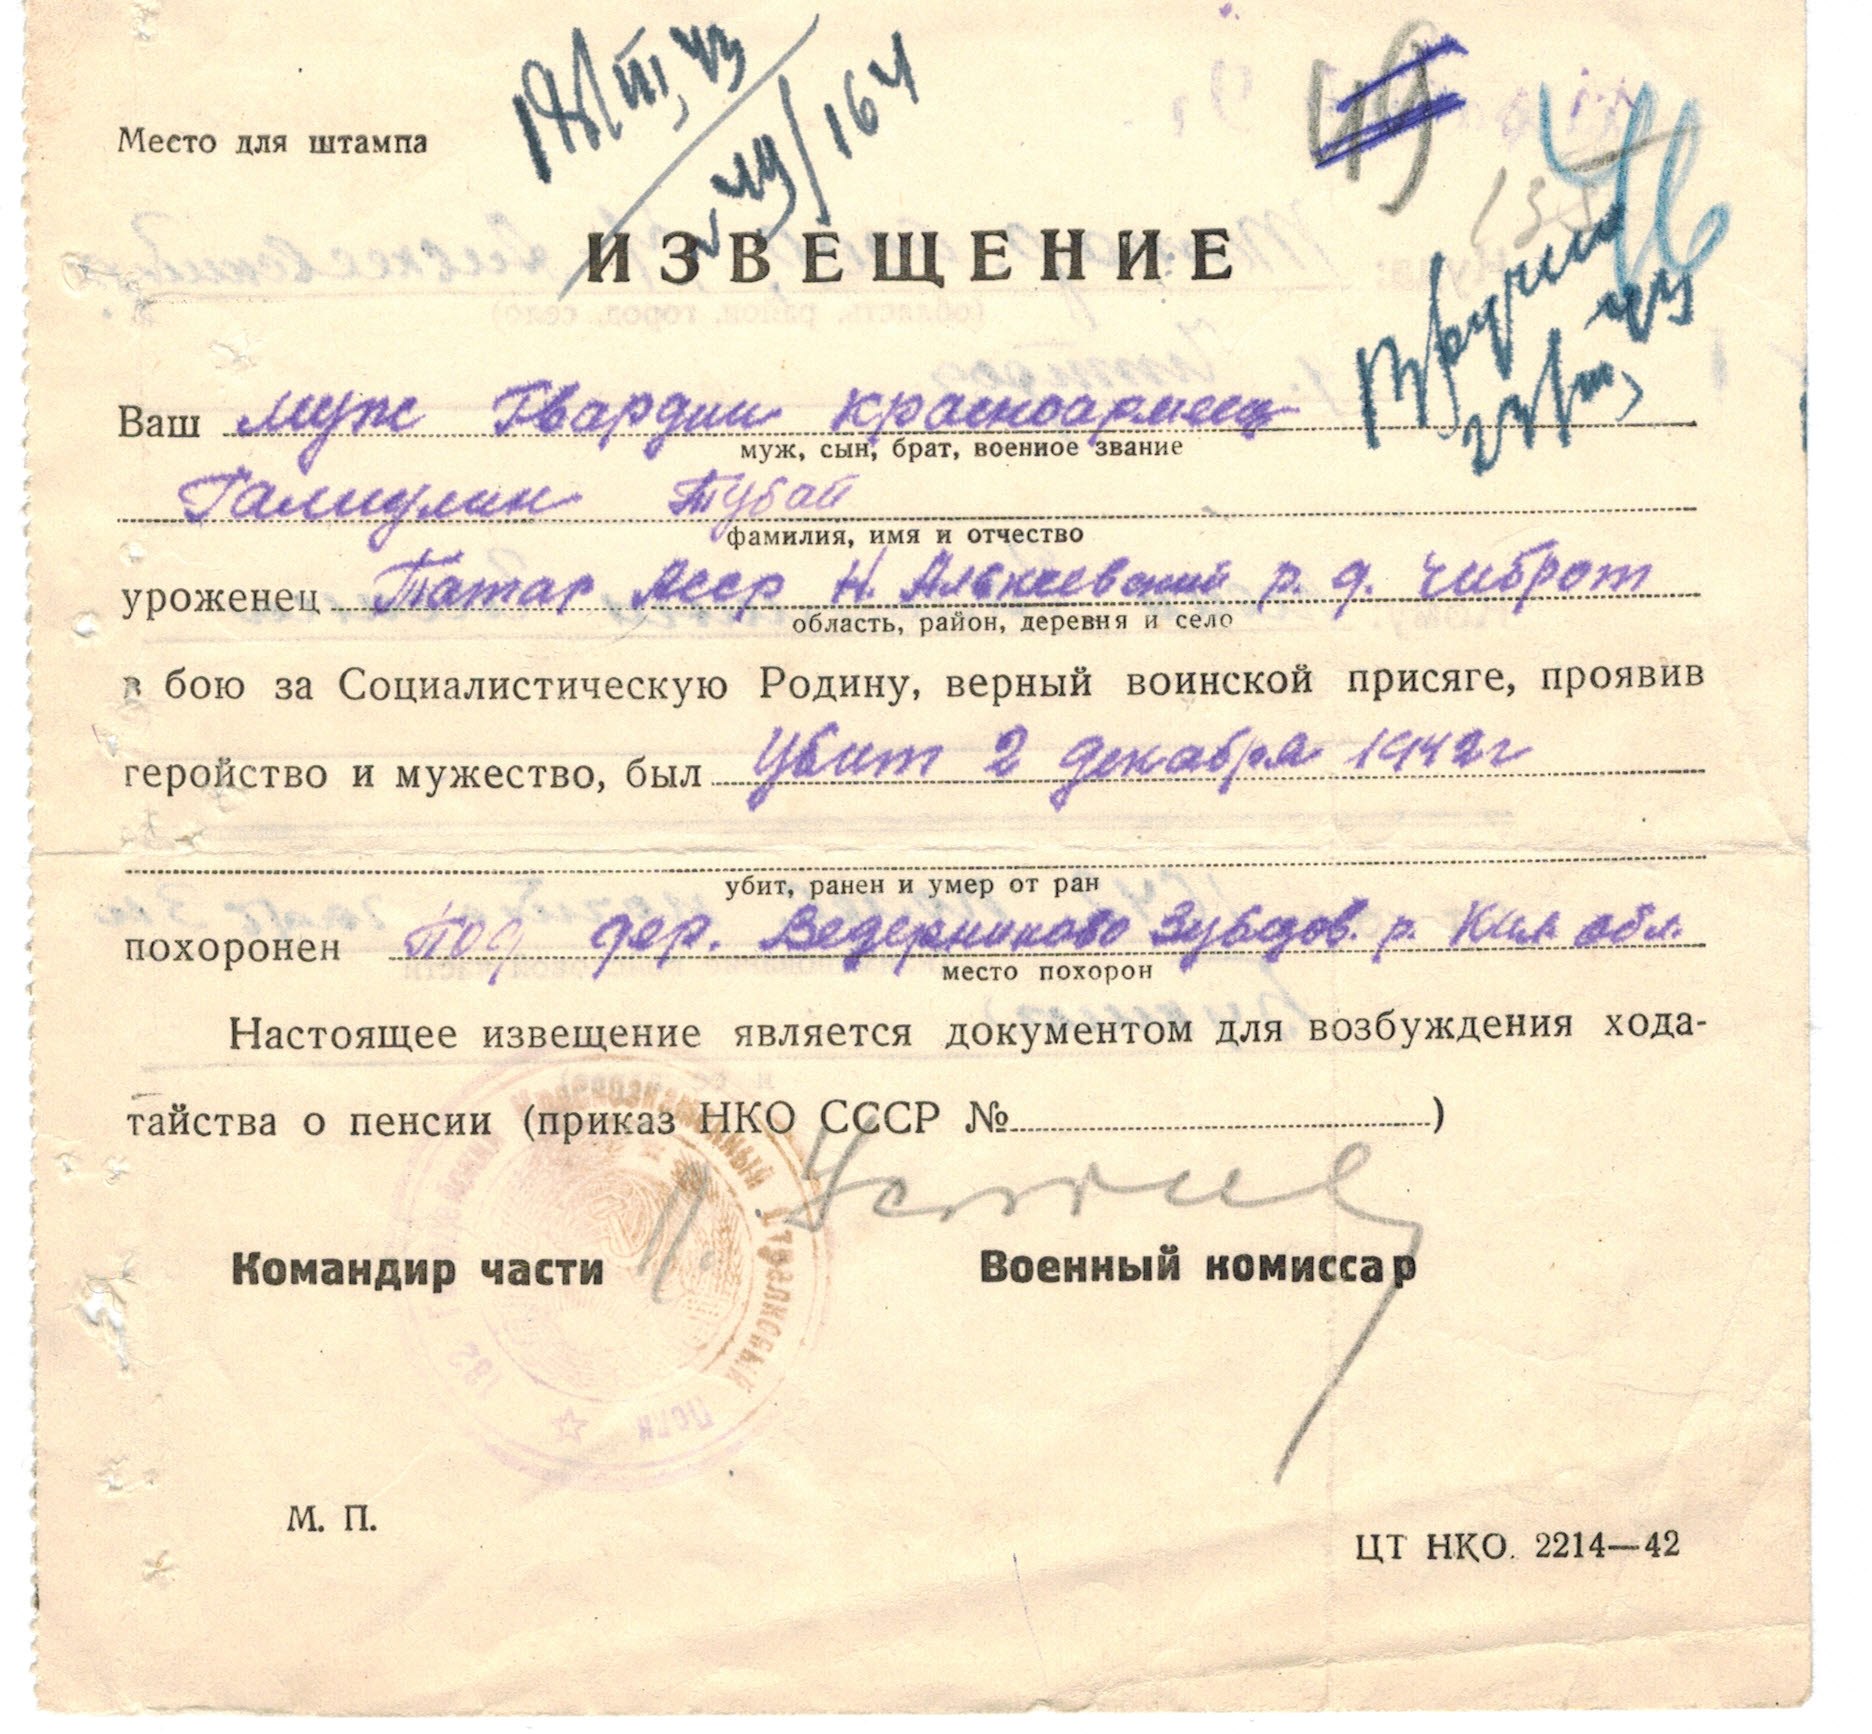 18/III 43
№ 49/164
49
46
Место для штампа
ИЗВЕЩЕНИЕ
Вручено
23/III 43
Ваш муж Гвардии красноармеец
муж, сын, брат, военное звание
Галиулин Тубай
фамилия, имя и отчество
уроженец Татар Асср Н. Алькеевский р. д. Чиброт
область, район, деревня и село
в бою за Социалистическую Родину, верный воинской присяге, проявив
геройство и мужество, был Убит 2 декабря 1942г
убит, ранен и умер от ран
похоронен под дер. Ведерниково Зубцов. р. Кал. обл.
место похорон
Настоящее извещение является документом для возбуждения хода-
тайства о пенсии (приказ НКО СССР № )
Командир части Военный комиссар
М. П.
ЦТ НКО. 2214—42